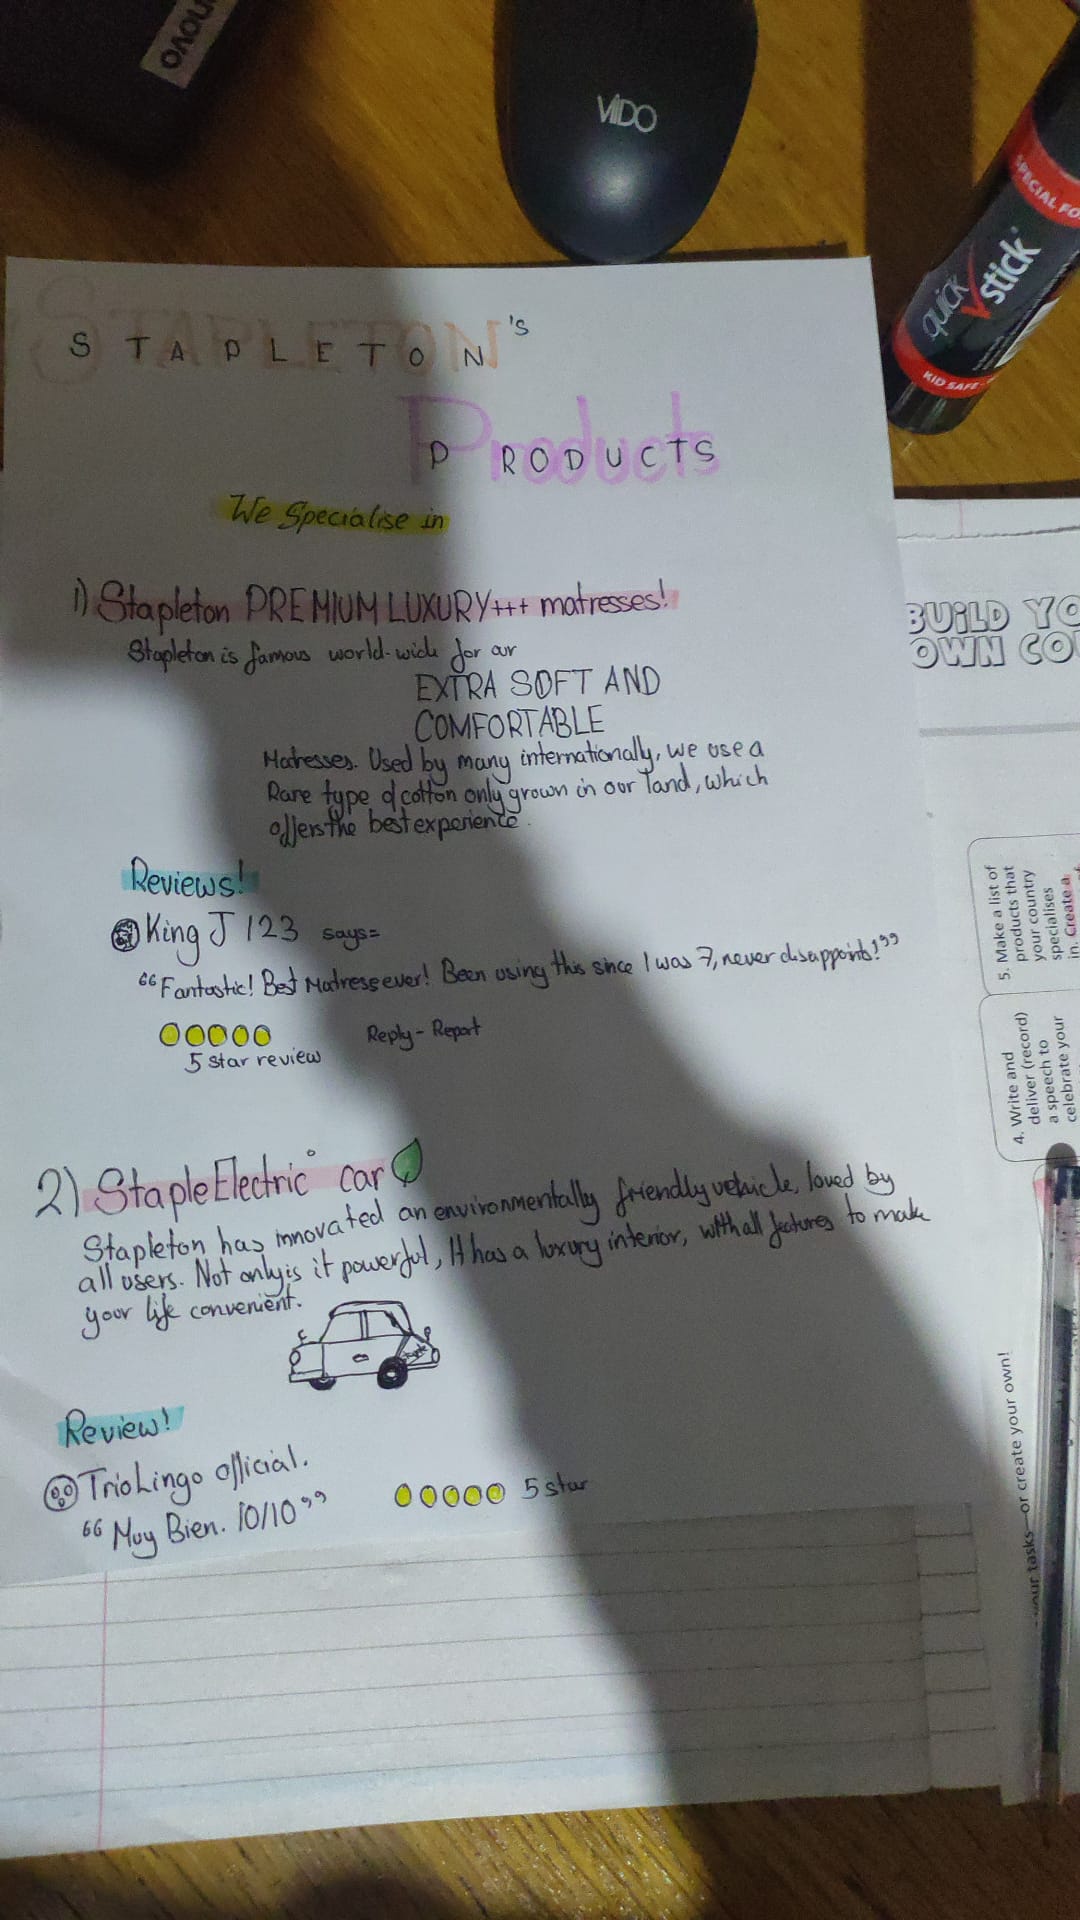 Lenovo
VIDO
SPECIAL FO
quick stick
KID SAFE
STAPLETON'S
STAPLETON'S
Products
PRODUCTS
We Specialise in
1) Stapleton PREMIUM LUXURY+++ matresses!
Stapleton is famous world-wide for our
EXTRA SOFT AND
COMFORTABLE
Matresses. Used by many internationally, we use a
Rare type of cotton only grown in our land, which
offers the best experience.
Reviews!
King J 123 says=
“Fantastic! Best Matress ever! Been using this since I was 7, never disappoints!”
5 star review
Reply - Report
2) StapleElectric° car
Stapleton has innovated an environmentally friendly vehicle, loved by
all users. Not only is it powerful, It has a luxury interior, with all features to make
your life convenient.
Review!
TrioLingo official.
“Muy Bien. 10/10”
5 star
BUILD YO
OWN CO
5. Make a list of
products that
your country
specialises
in. Create a
4. Write and
deliver (record)
a speech to
celebrate your
your tasks—or create your own!